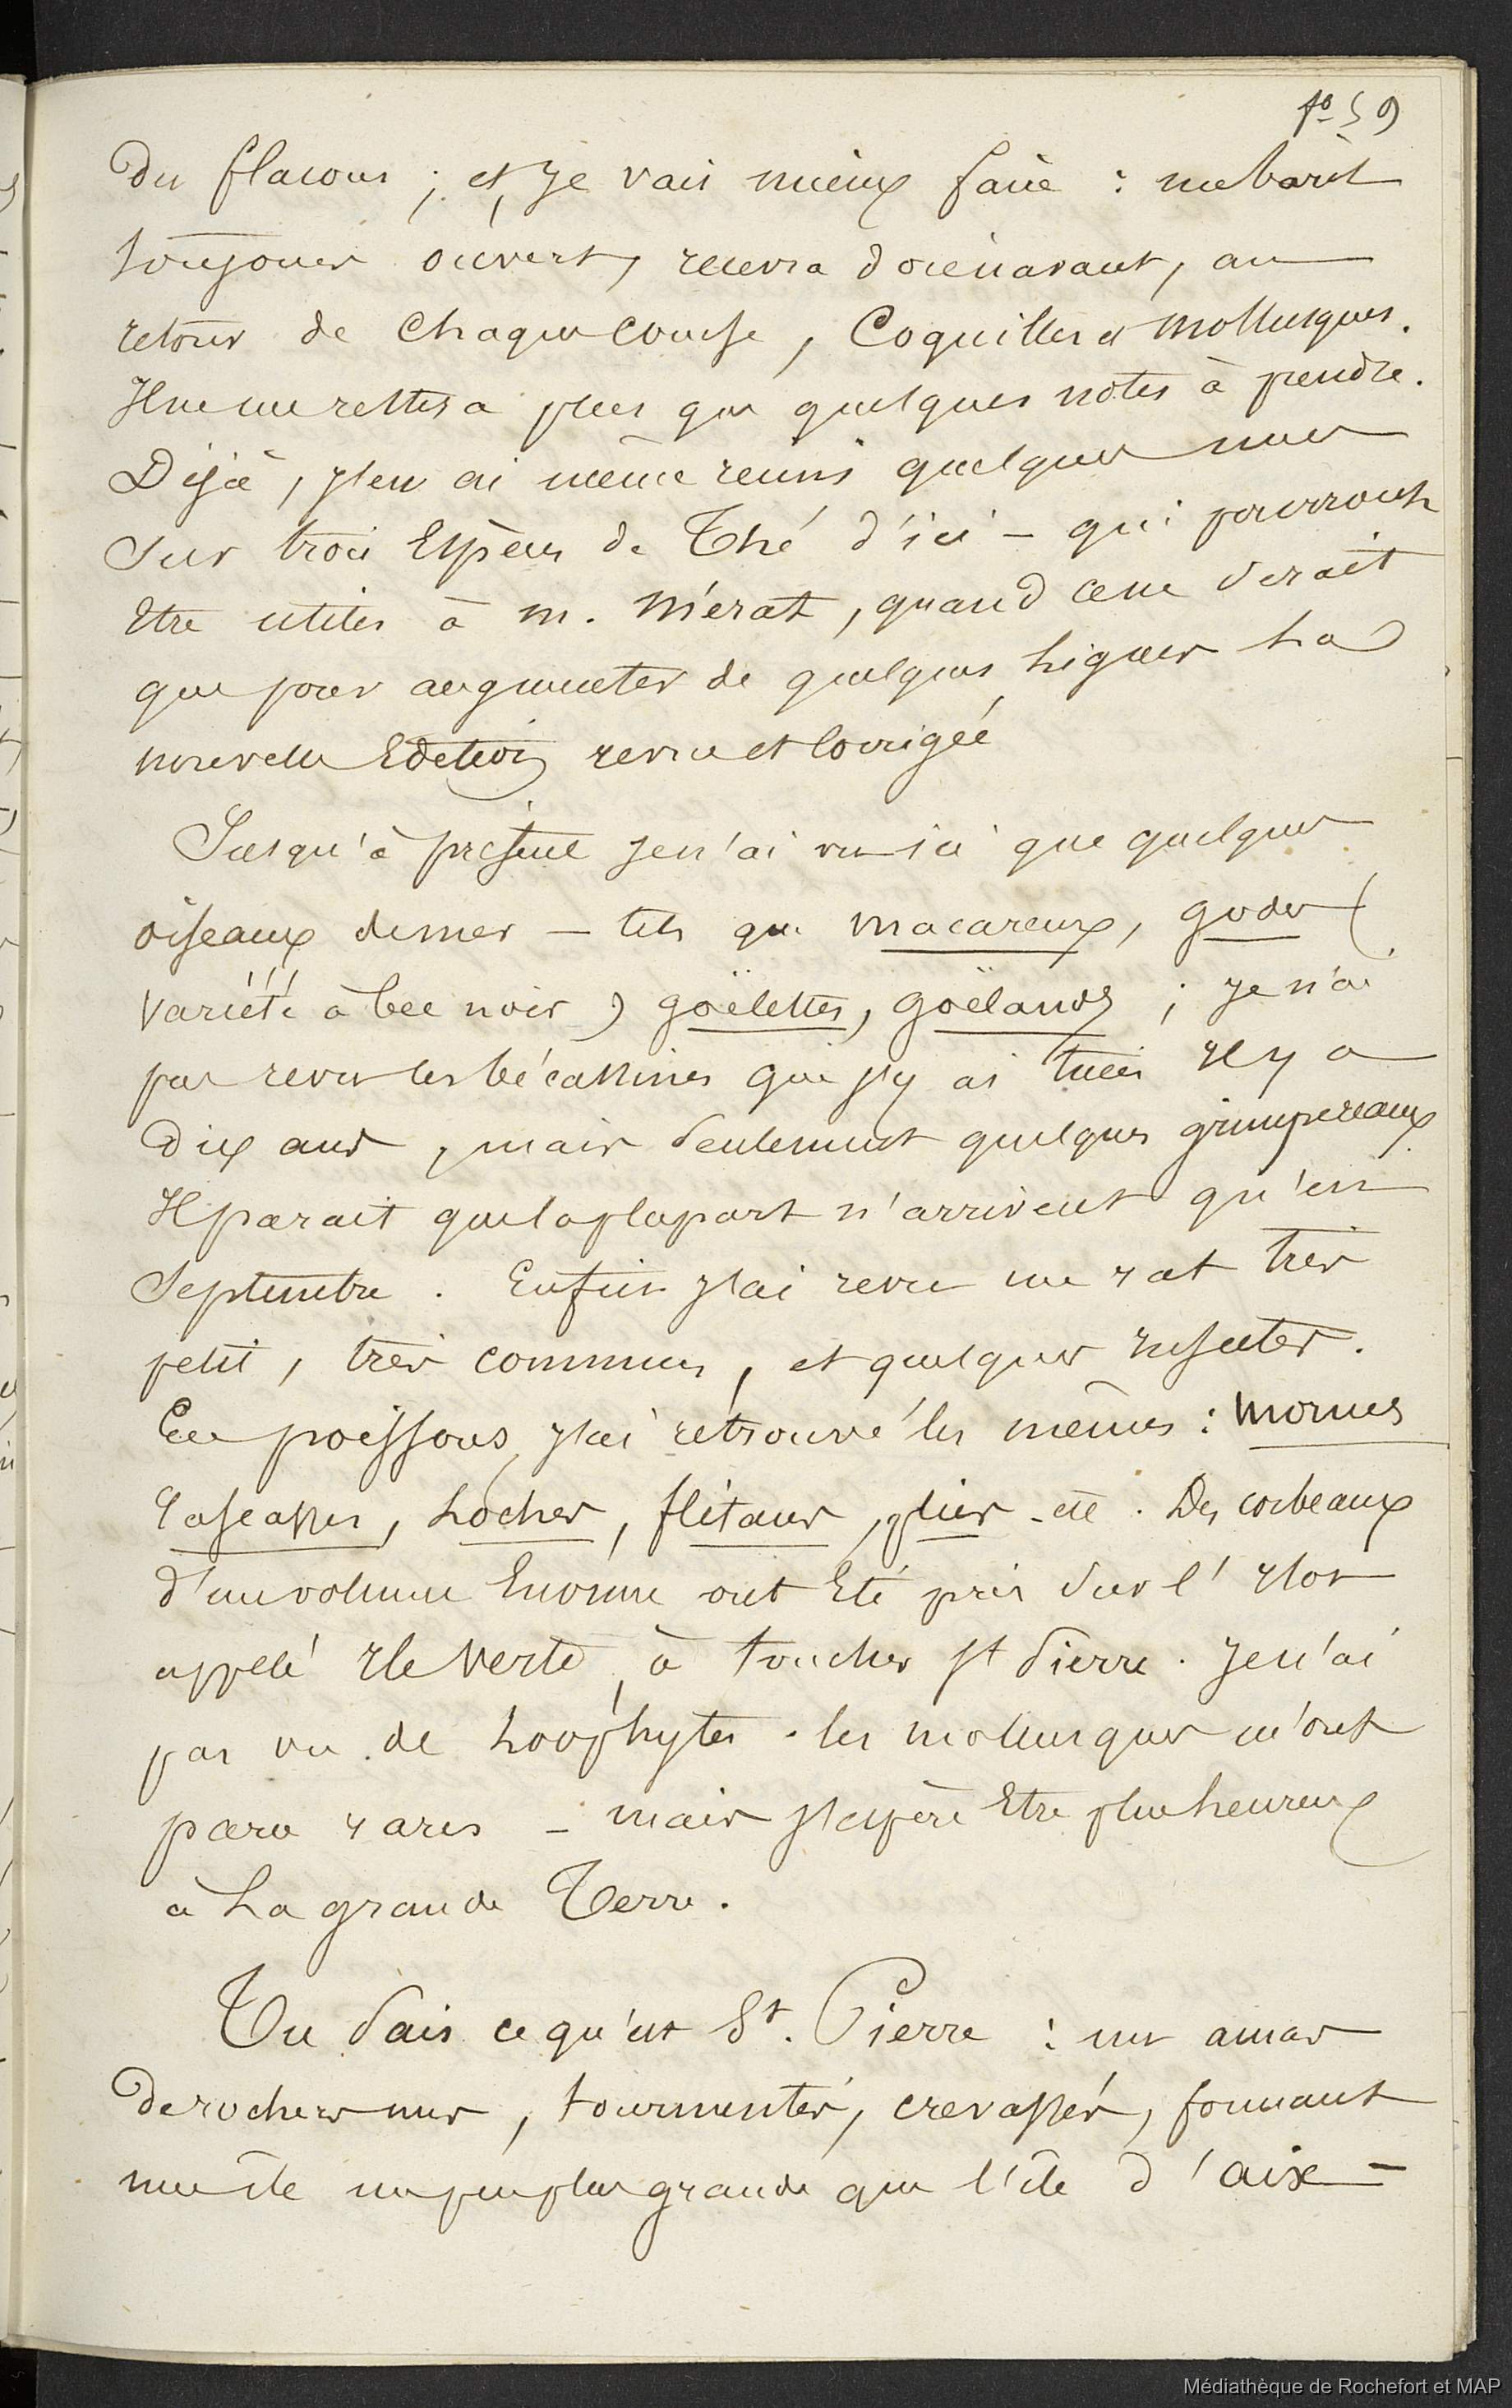 fo 59
des flacons ; et je vais mieux faire : un baril
toujours ouvert, recevra dorénavant, au
retour de chaque course, Coquilles et Mollusques.
Il ne me restera plus que quelques notes à prendre.
Déjà, j'en ai même réuni quelques unes
sur trois Espèces de Thé d'ici – qui pourront
Etre utiles à m. Mérat, quand ce ne serait
que pour augmenter de quelques lignes La
nouvelle Edition revue et Corrigée
Jusqu'à présent je n'ai vu ici que quelques
oiseaux de mer – tels que macareux, godes (
variété à bec noir) goëlettes, goëlands ; je n'ai
pas revu les bécassines que j'y ai tuées Il y a
Dix ans, mais seulement quelques grimpereaux
Il parait que la plupart n'arrivent qu'en
Septembre. Enfin j'ai revu un rat très
petit, très commun, et quelques insectes.
En poissons, j'ai retrouvé les mêmes : Morues
, Loches, flétans, plies etc. Des corbeaux
d'un volume Enorme ont Eté pris sur l'Ilot
appelé Ile Verte, à toucher St Pierre. Je n'ai
pas vu de Zoophytes. les mollusques m'ont
paru rares – mais j'espère Etre plus heureux
à La grande Terre.
Tu sais ce qu'est St. Pierre : un amas
de rochers nus, tourmentés, crevassés, formant
une île un peu plus grande que l'île d'aix –
Médiathèque de Rochefort et MAP